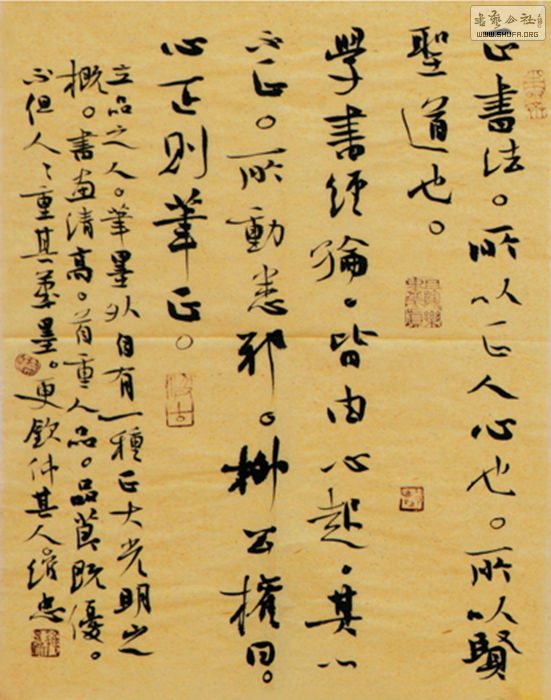 正書法。所以正人心也。所以賢
聖道也。
學書經綸。皆由心起。其心
不正。所動悉邪。柳公權曰。
心正則筆正。
立品之人。筆墨外自有一種正大光明之
概。書畫清高。首重人品。品節既優。
不但人々重其筆墨。更欽仰其人。忠
書藝公社
WWW.SHUFA.ORG